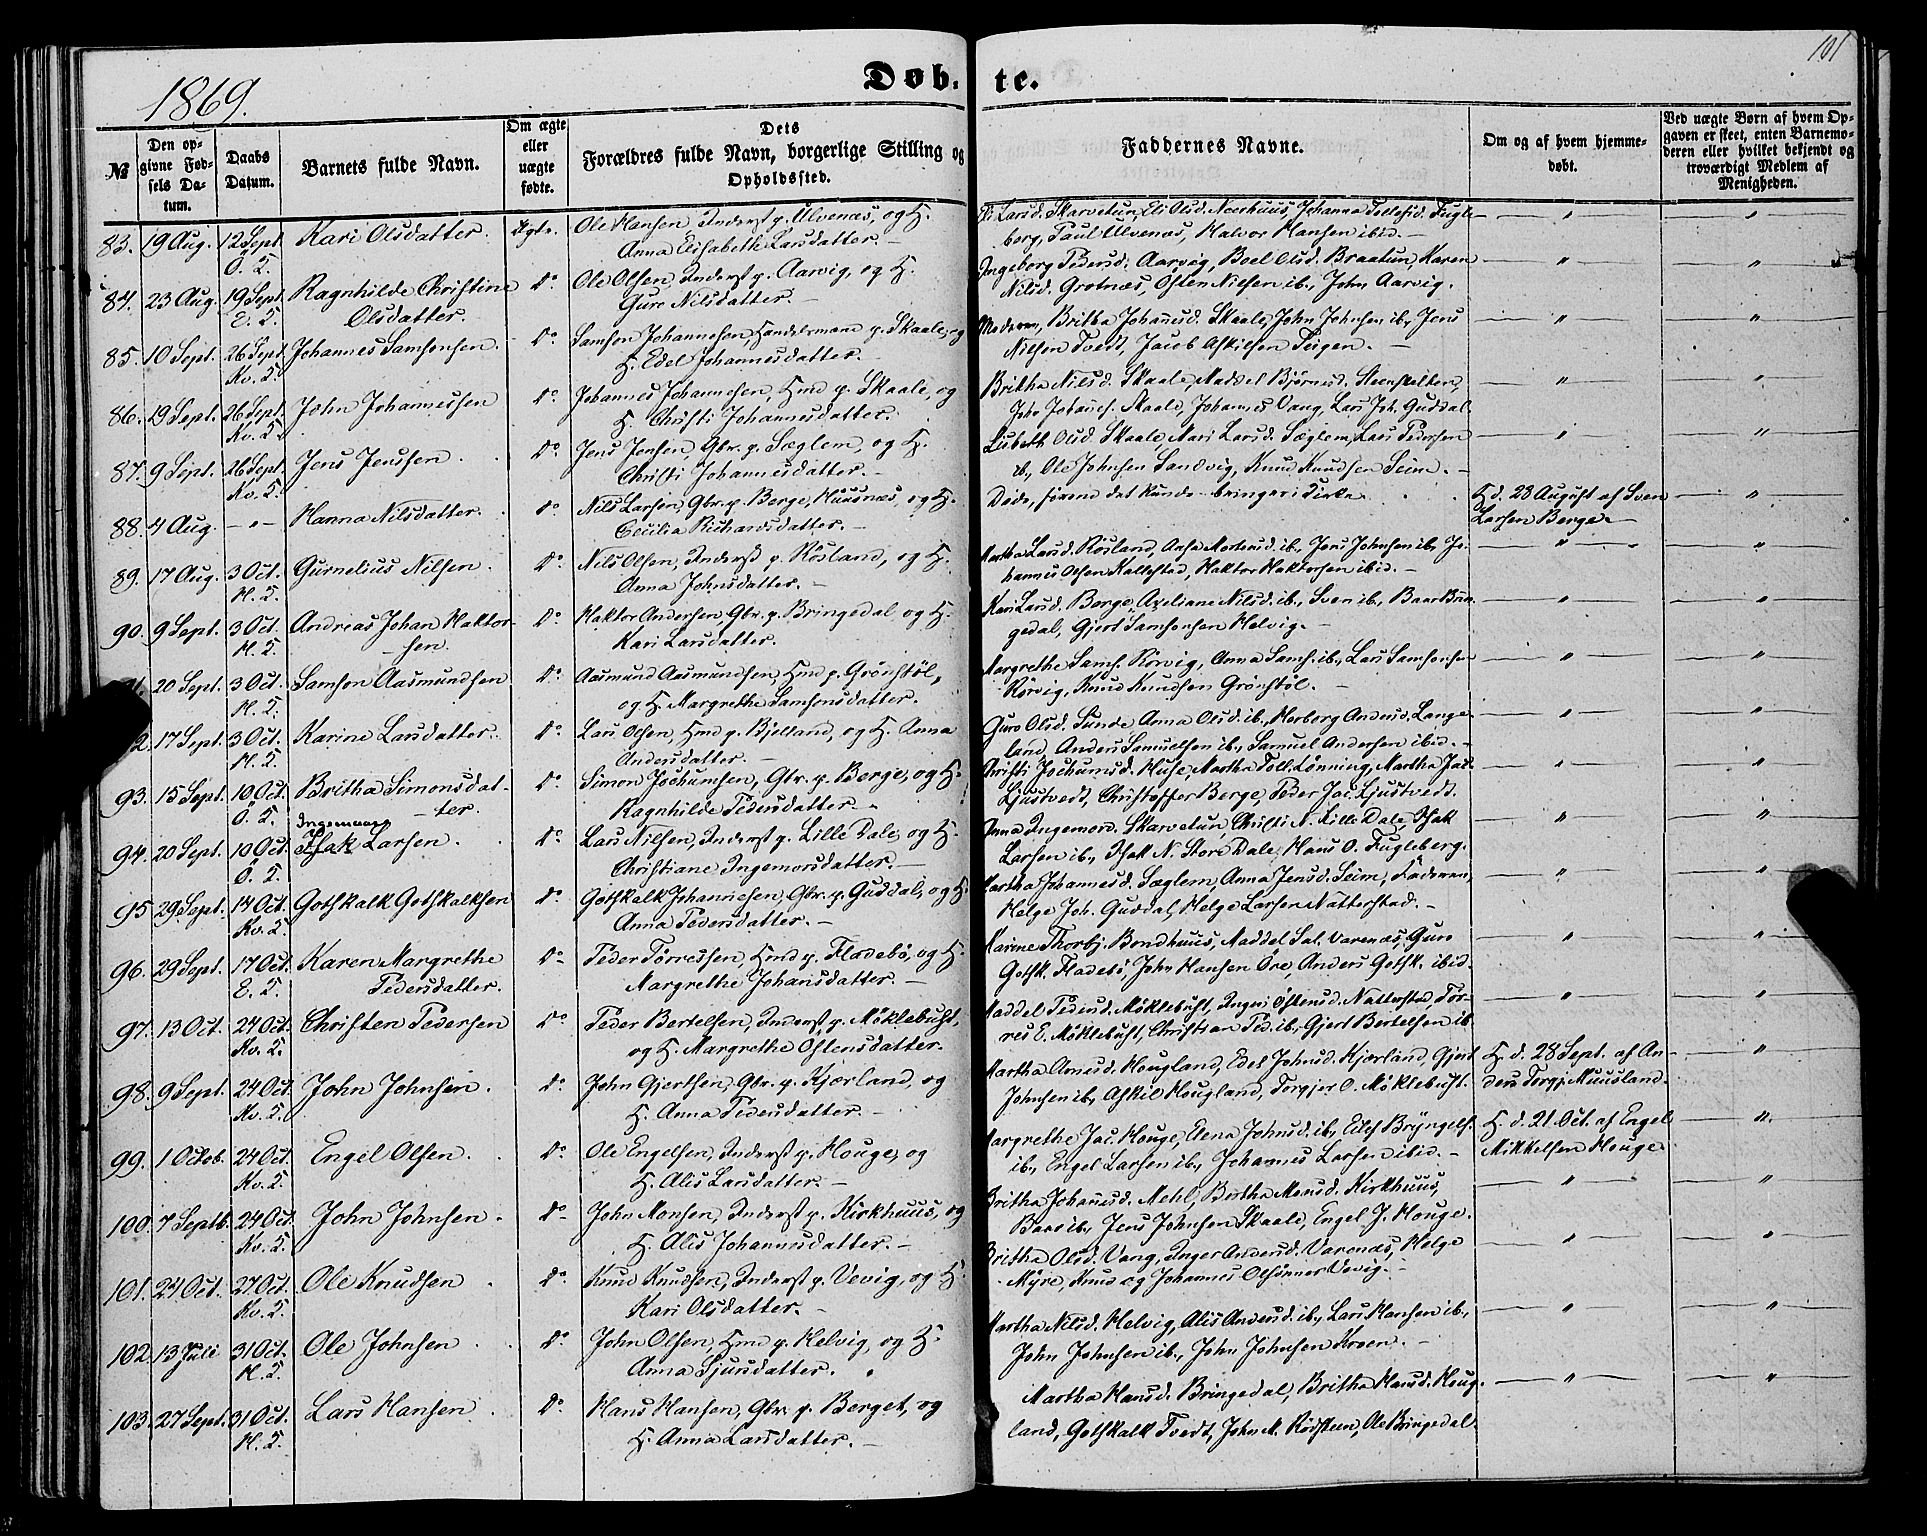 101
1869.
Døb- te.
№
Den op-
givne Fød-
sels Da-
tum.
Daabs
Datum.
Barnets fulde Navn.
Om ægte
eller
uægte
fødte.
Dets
Forældres fulde Navn, borgerlige Stilling og
Opholdssted.
Faddernes Navne.
Om og af hvem hjemme-
døbt.
Ved uægte Børn af hvem Op-
gaven er skeet, enten Barnemo-
deren eller hvilket bekjendt og
troværdigt Medlem af
Menigheden.
83. 19 Aug. 12 Sept. Kari Olsdatter. Ægte. Ole Hansen, Inderst p. Ulvenæs, og H.
Ö. K. Anna Elisabeth Larsdatter. —
Eli Larsd. Skarvetun, Eli Olsd. Neerhuus, Johanna Tollefsd. Fugle-
borg, Paul Ulvenæs, Halvor Hansen ibid. —
84. 23 Aug. 19 Sept. Ragnhilde Christine do Ole Olsen, Inderst p. Aarvig, og H.
E. K. Olsdatter. Guro Nilsdatter. —
Ingeborg Pedersd. Aarvig, Boel Olsd. Braatun, Karen
Nilsd. Grotnæs, Østen Nielsen ib., John Aarvig.
85. 10 Sept. 26 Sept. Johannes Samsonsen. do Samson Johannesen, Handelsmand p. Skaale, og
Kv. K. H. Edel Johannesdatter. —
Moderen, Britha Johannesd. Skaale, John Johnsen ib., Jens
Nilsen Tvedt, Jacob Askilsen Teigen. —
86. 19 Sept. 26 Sept. John Johannessen do Johannes Johannesen, Hmd p. Skaale, og
Kv. K. H. Christi Johannesdatter.
Britha Nilsd. Skaale, Maddel Bjørnesd. Steenskelten,
John Johannes. Skaale, Johannes Vang, Lars Joh. Guddal.
87. 9 Sept. 26 Sept. Jens Jenssen do Jens Jensen, Gbr. p. Sæglem, og H.
Kv. K. Christi Johannesdatter. —
Lisbeth Olsd. Skaale, Mari Larsd. Sæglem, Lars Pedersen
ib., Ole Johnsen Sandvig, Knud Knudsen Seim. —
88. 4 Aug. — " — Hanna Nilsdatter. do Nils Larsen, Gbr. p. Berge, Huusnæs, og H.
Cecilia Richardsdatter. —
Døde, førend det kunde bringes i Kirke. H. d. 23 August af Sven
Larsen Berge. —
89. 17 Aug. 3 Oct. Gurnelius Nilsen. do Nils Olsen, Inderst p. Røsland, og H.
H. K. Anna Johnsdatter. —
Martha Larsd. Røsland, Ane Mortensd. ib., Jens Johnsen ib., Jo-
hannes Olsen Kallestad, Haktor Haktorsen ibid. —
90. 9 Sept. 3 Oct. Andreas Johan Haktor- do Haktor Andersen, Gbr. p. Bringedal og H.
H. K. sen. Kari Larsdatter.
Kari Larsd. Berge, Axeliane Nilsd. ib., Sven ib., Baar Brin-
gedal, Gjert Samsonsen Helvig. —
20 Sept. 3 Oct. Samson Aasmundsen do Aasmund Aasmundsen, Hmd p. Grønstøl,
H. K. og H. Margrethe Samsonsdatter. —
Margrethe Sams. Rörvig, Anna Sams. ib., Lars Samsonsen
Rörvig, Knud Knudsen Grønstøl. —
17 Sept. 3 Oct. Karine Larsdatter. do Lars Olsen, Hmd p. Bjelland, og H. Anna
H. K. Andersdatter. —
Guro Olsd. Sunde, Anna Olsd. ib., Herborg Andersd. Lange-
land, Anders Samuelsen ib., Samuel Andersen ibid. —
93. 15 Sept. 10 Oct. Britha Simonsdat- do Simon Jochumsen, Gbr. p. Berge, og H.
Ö. K. ter. Ragnhilde Pedersdatter. —
Christi Jochumsd. Huse, Martha Toll. Lønning, Martha Jac.
Ljustvedt, Christoffer Berge, Peder Jac. Ljustvedt.
Ingemaar
94. 20 Sept. 10 Oct. Isak Larsen. do Lars Nilsen, Inderst p. Lille Dale, og H.
Ö. K. Christiane Ingemorsdatter. —
Anna Ingemors. Skarvetun, Christi N. Lille Dale, Isak
Larsen ib., Isak N. Store Dale, Hans O. Fugleberg.
95 29 Sept. 14 Oct. Gotskalk Gotskalksen do Gotskalk Johannesen, Gbr. p. Guddal, og H.
Kv. K. Anna Pedersdatter. —
Martha Johannesd. Sæglem, Anna Jensd. Seim, Faderen,
Helge Joh. Guddal, Helge Larsen Natterstad. —
96. 29 Sept. 17 Oct. Karen Margrethe do Peder Torressen, Hmd p. Fladebö, og H.
E. K. Pedersdatter. Margrethe Johansdatter. —
Karine Thorbj. Bondhuus, Maddel Sal. Varenæs, Guro
Gotsk. Fladebö, John Hansen Öre, Anders Gotsk. ibid.
97. 13 Oct. 24 Oct. Christen Pedersen do Peder Bertelsen, Inderst p. Möklebust,
Kv. K. og H. Margrethe Östensdatter.
Maddel Pedersd. Möklebust, Inger Östensd. Natterstad, Tor-
res E. Möklebust, Christian Ped. ib., Gjert Bertelsen ib.
98. 9 Sept. 24 Oct. John Johnsen. do John Gjertsen, Gbr. p. Kjærland, og
Kv. K. H. Anna Pedersdatter. —
Martha Amusd. Hougland, Edel Johnsd. Kjærland, Gjert
Johnsen ib., Askil Hougland, Torgjer O. Möklebust.
H. d. 28 Sept. af An-
ders Torgj. Muusland.
99. 1 Octob. 24 Oct. Engel Olsen. do Ole Engelsen, Inderst p. Houge, og
Kv. K. H. Alis Larsdatter. —
Margrethe Jac. Houge, Elena Johnsd. ib., Eilef Bryngels.
ib., Engel Larsen ib., Johannes Larsen ibid. —
H. d. 21 Oct. af Engel
Mikkelsen Houge
100. 7 Septb. 24 Oct. John Johnsen. do John Monsen, Inderst p. Kirkhuus, og
Kv. K. H. Alis Johannesdatter. —
Britha Johannesd. Mehl, Britha Monsd. Kirkhuus,
Baar ib., Jens Johnsen Skaale, Engel J. Houge.
101. 24 Oct. 27 Oct. Ole Knudsen do Knud Knudsen, Inderst p. Vevig, og H.
Kv. K. Kari Olsdatter. —
Britha Olsd. Vang, Inger Andersd. Varenæs, Helge
Myre, Knud og Johannes Olsønner Vevig. —
102. 13 Juli 31 Oct. Ole Johnsen do John Olsen, Hmd p. Helvig, og H.
H. K. Anna Sjursdatter.
Martha Nilsd. Helvig, Alis Andersd. ib., Lars Hansen ib.,
John Johnsen ib., John Johnsen Kroen. —
103. 27 Sept. 31 Oct. Lars Hansen. do Hans Hansen, Gbr. p. Berget, og
H. K. H. Anna Larsdatter. —
Martha Hansd. Bringedal, Britha Hansd. Houg-
land, Gotskalk Tvedt, John M. Rødsteen, Ole Bringedal.